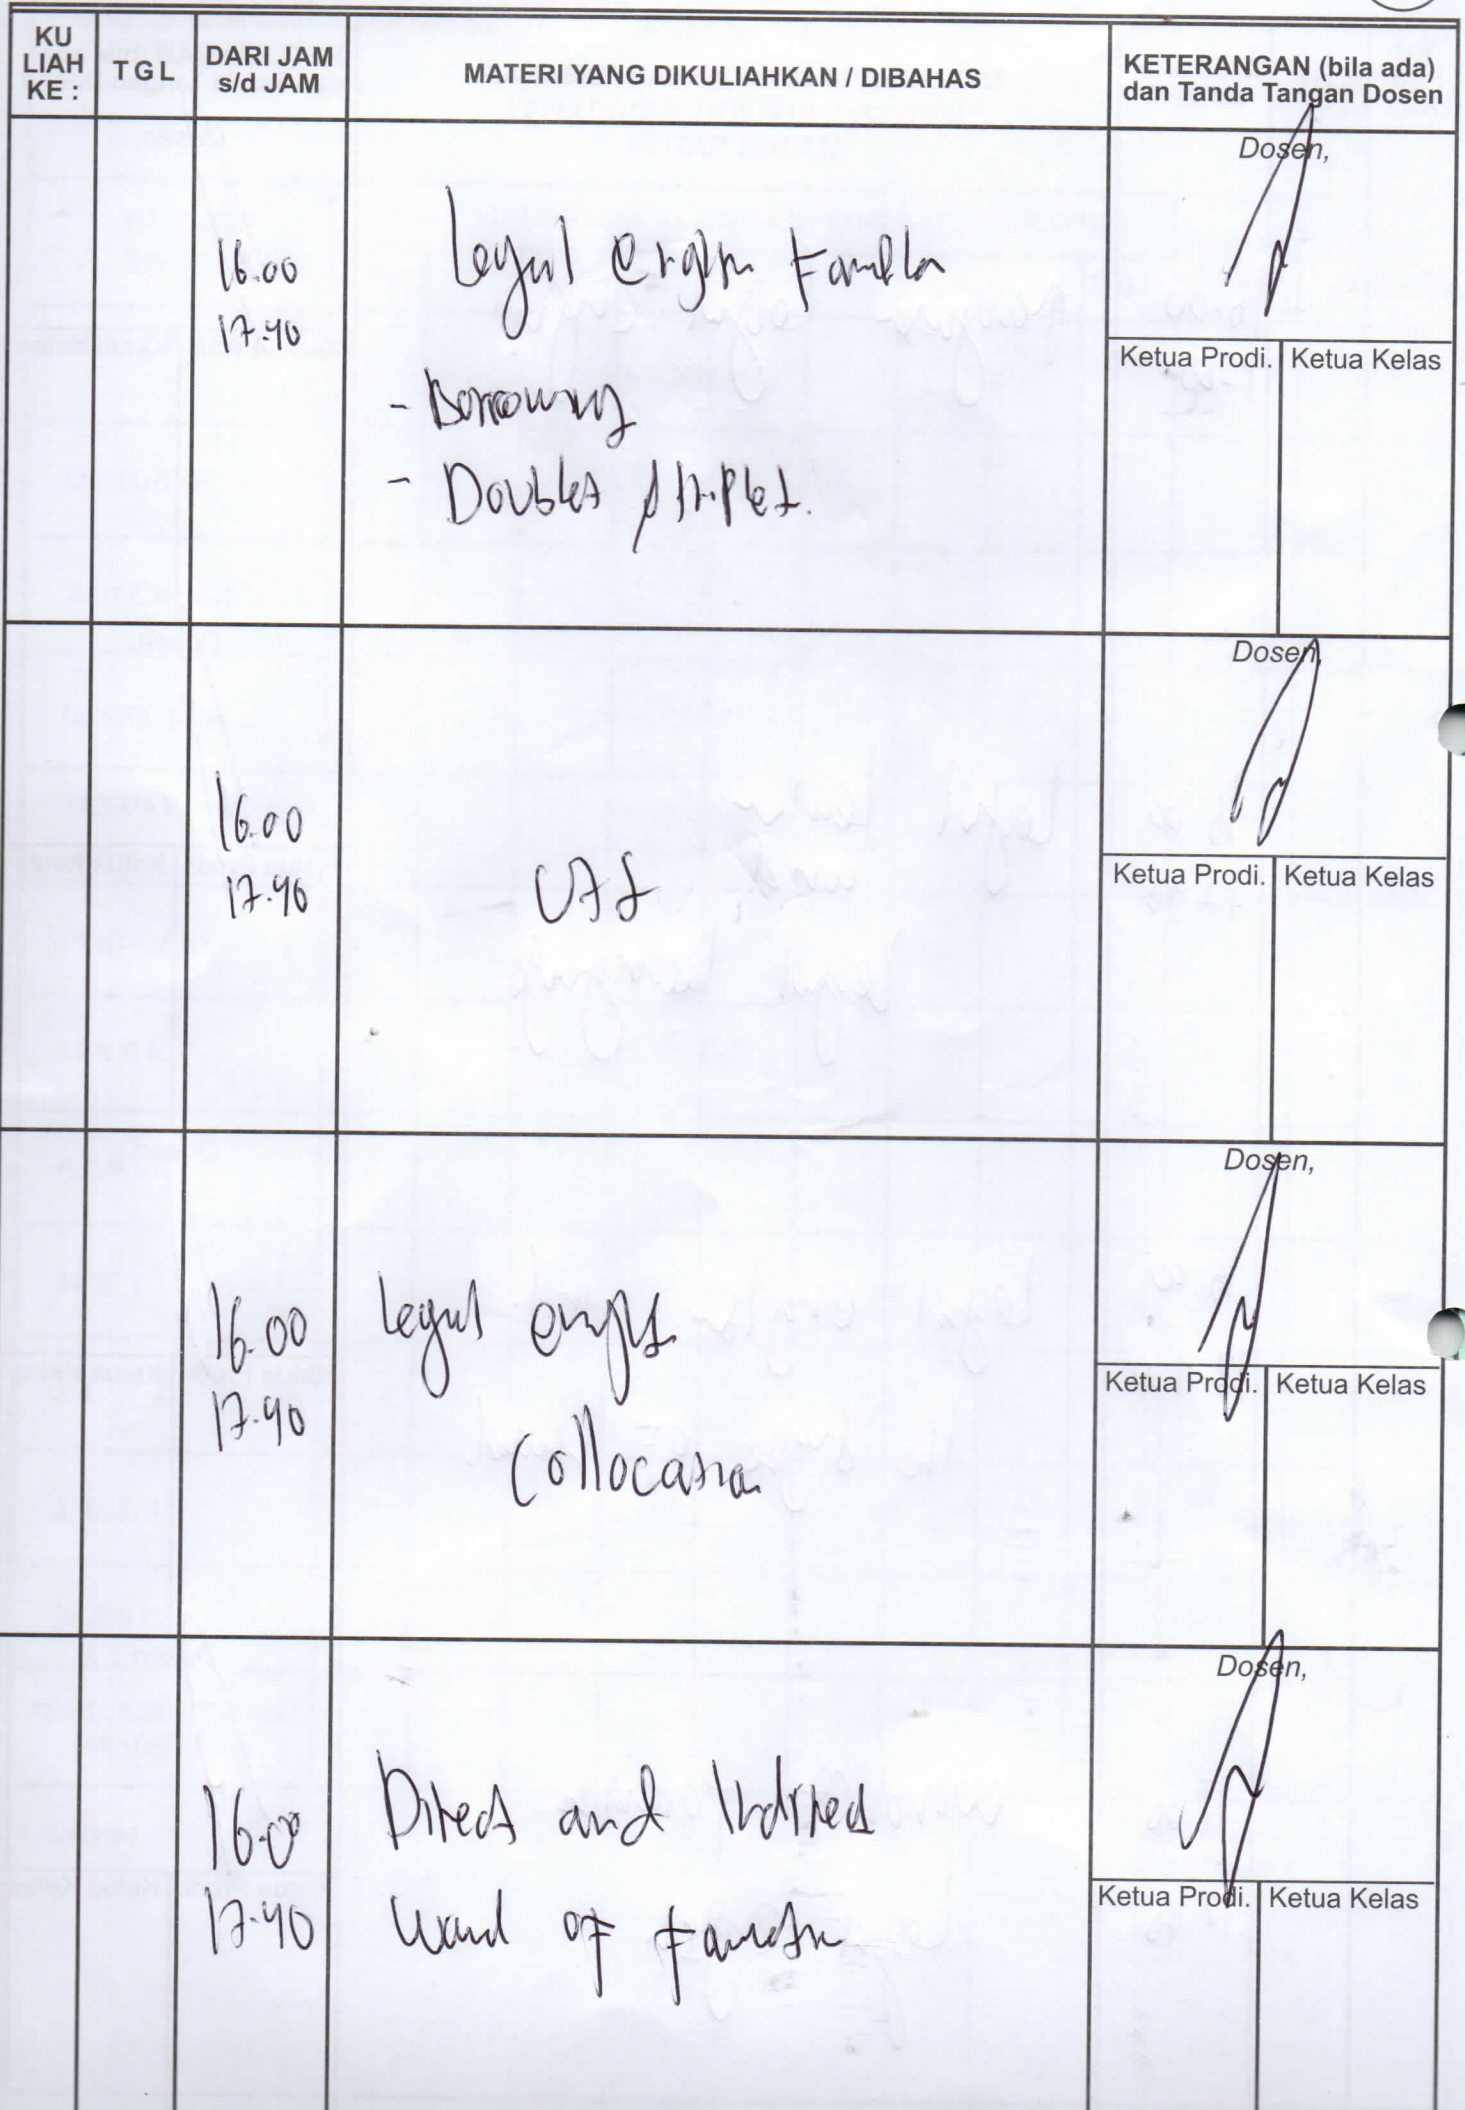 KU LIAH KE :
TGL
DARI JAM s/d JAM
MATERI YANG DIKULIAHKAN / DIBAHAS
KETERANGAN (bila ada) dan Tanda Tangan Dosen
16.00
17.40
Legal
- Borrowing
- Doublet / triplet.
Dosen,
Ketua Prodi. Ketua Kelas
16.00
17.40
Dosen,
Ketua Prodi. Ketua Kelas
16.00
17.40
Legal
Dosen,
Ketua Prodi. Ketua Kelas
16.00
17.40
Direct and Indirect
of
Dosen,
Ketua Prodi. Ketua Kelas